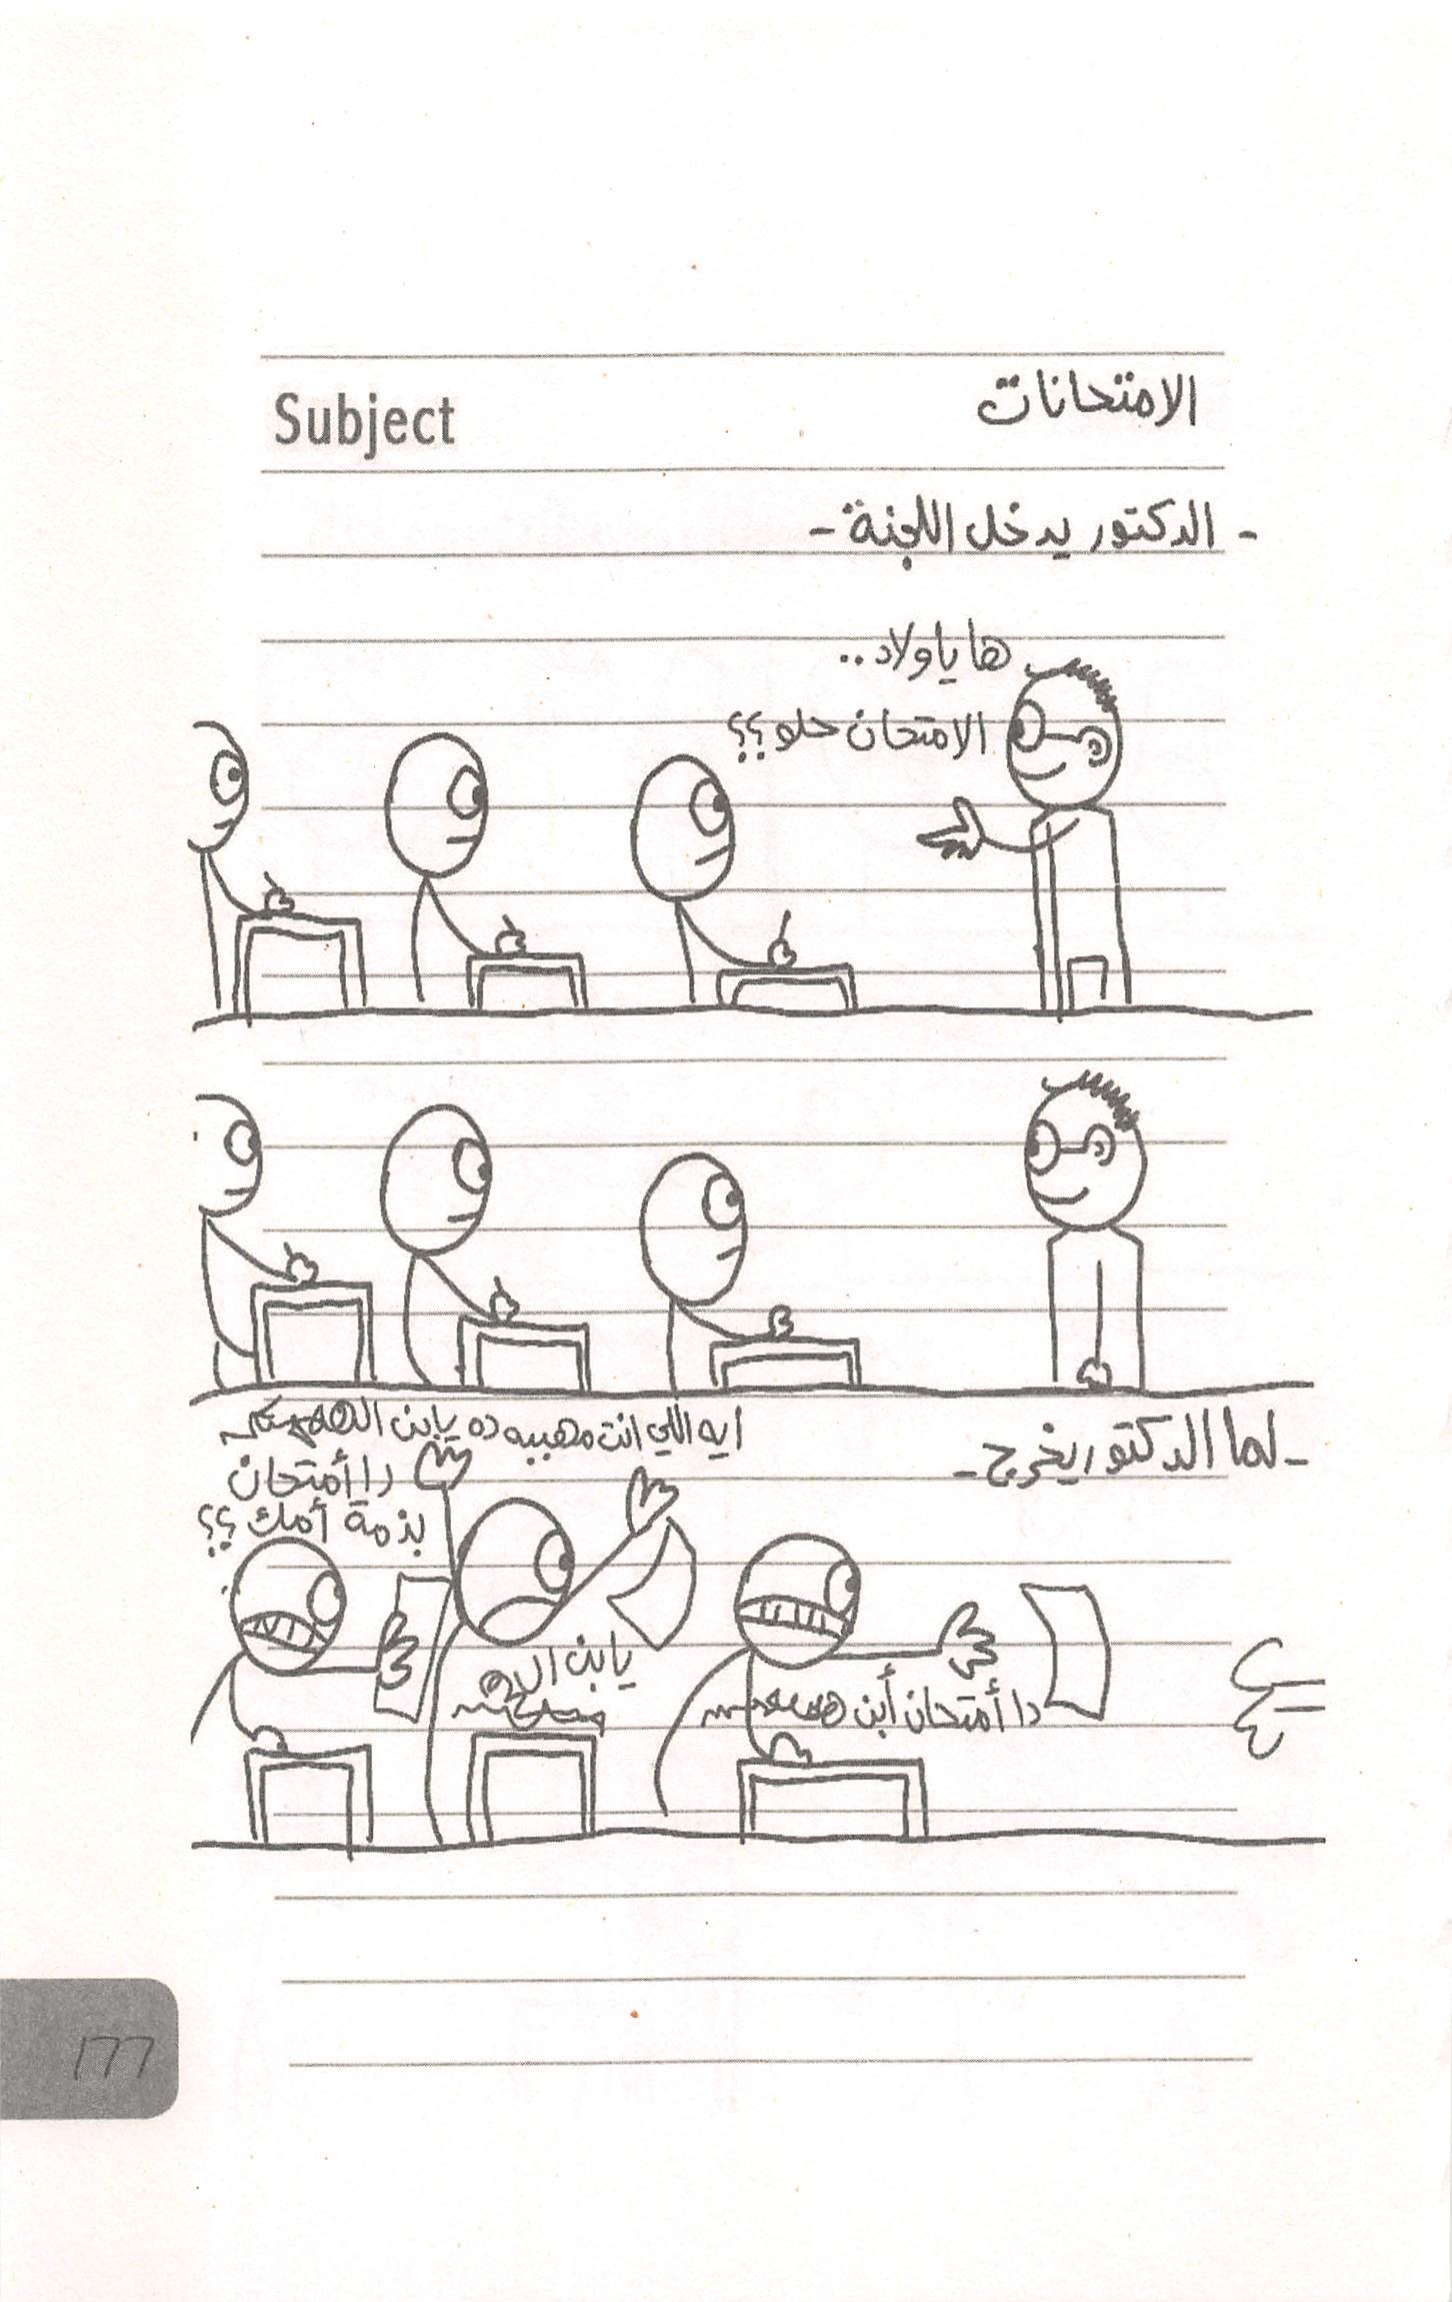 Subject
الامتحانات
- الدكتور يدخل اللجنة -
ها يا ولاد..
الامتحان حلو؟؟
- لما الدكتور يخرج -
ايه اللي انت مهببه ده يا ابن
دا أمتحان
بذمة أمك؟؟
يا بن ال
دا أمتحان أبن
177